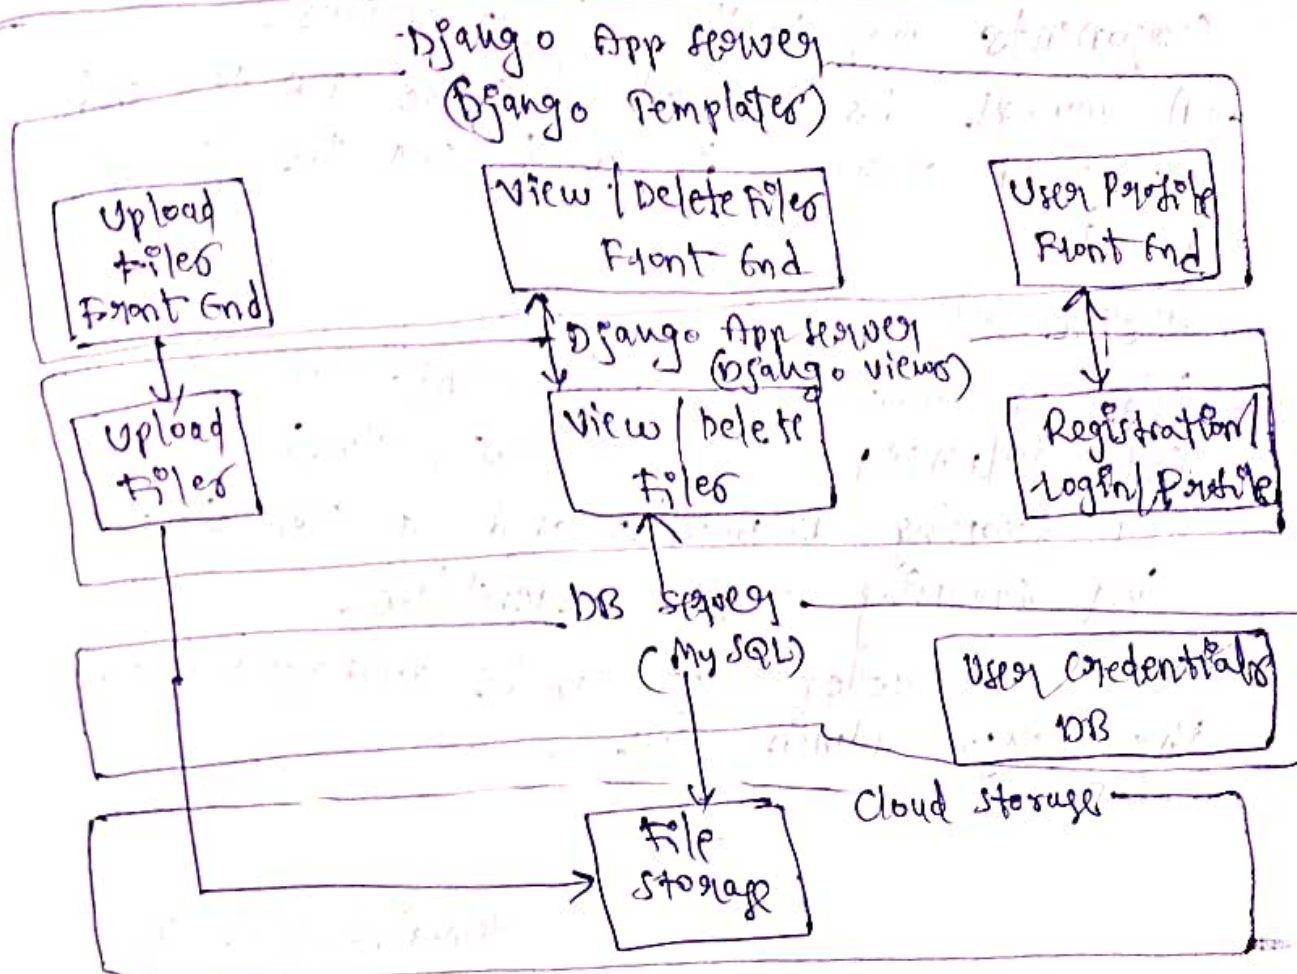 Django App server
(Django Templates)
Upload
Files
Front End
View / Delete Files
Front End
User Profile
Front End
Django App server
(Django views)
Upload
Files
View / Delete
Files
Registration/
Login/ Profile
DB Server
(My SQL)
User Credentials
DB
Cloud Storage
File
Storage